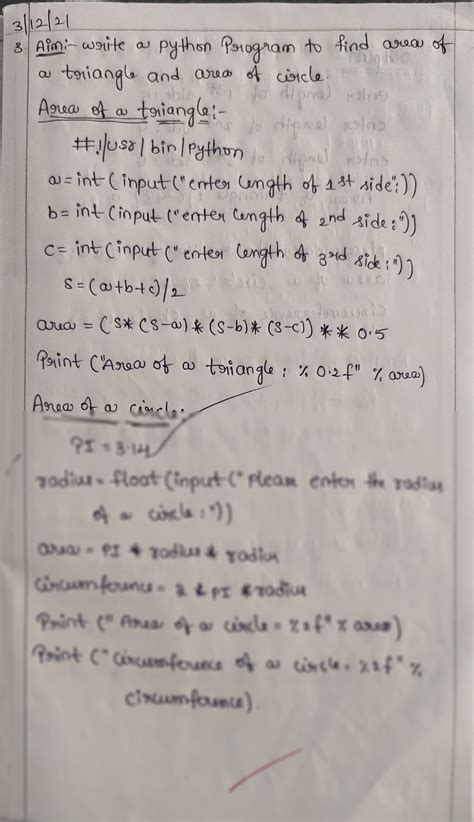 3/12/21
3. Aim:- write a python Program to find area of
a triangle and area of circle.
Area of a triangle:-
#!/usr/bin/python
a = int (input ("enter length of 1st side:"))
b = int (input ("enter length of 2nd side:"))
c = int (input ("enter length of 3rd side:"))
s = (a+b+c)/2
area = (s* (s-a) * (s-b)* (s-c)) ** 0.5
Print ("Area of a triangle: % 0.2f" % area)
Area of a circle:
PI = 3.14
radius = float (input (" Please enter the radius
of a circle:"))
area = PI * radius * radius
circumference = 2 * PI * radius
Print (" Area of a circle = %2f" % area)
Print (" circumference of a circle = %2f" %
circumference).